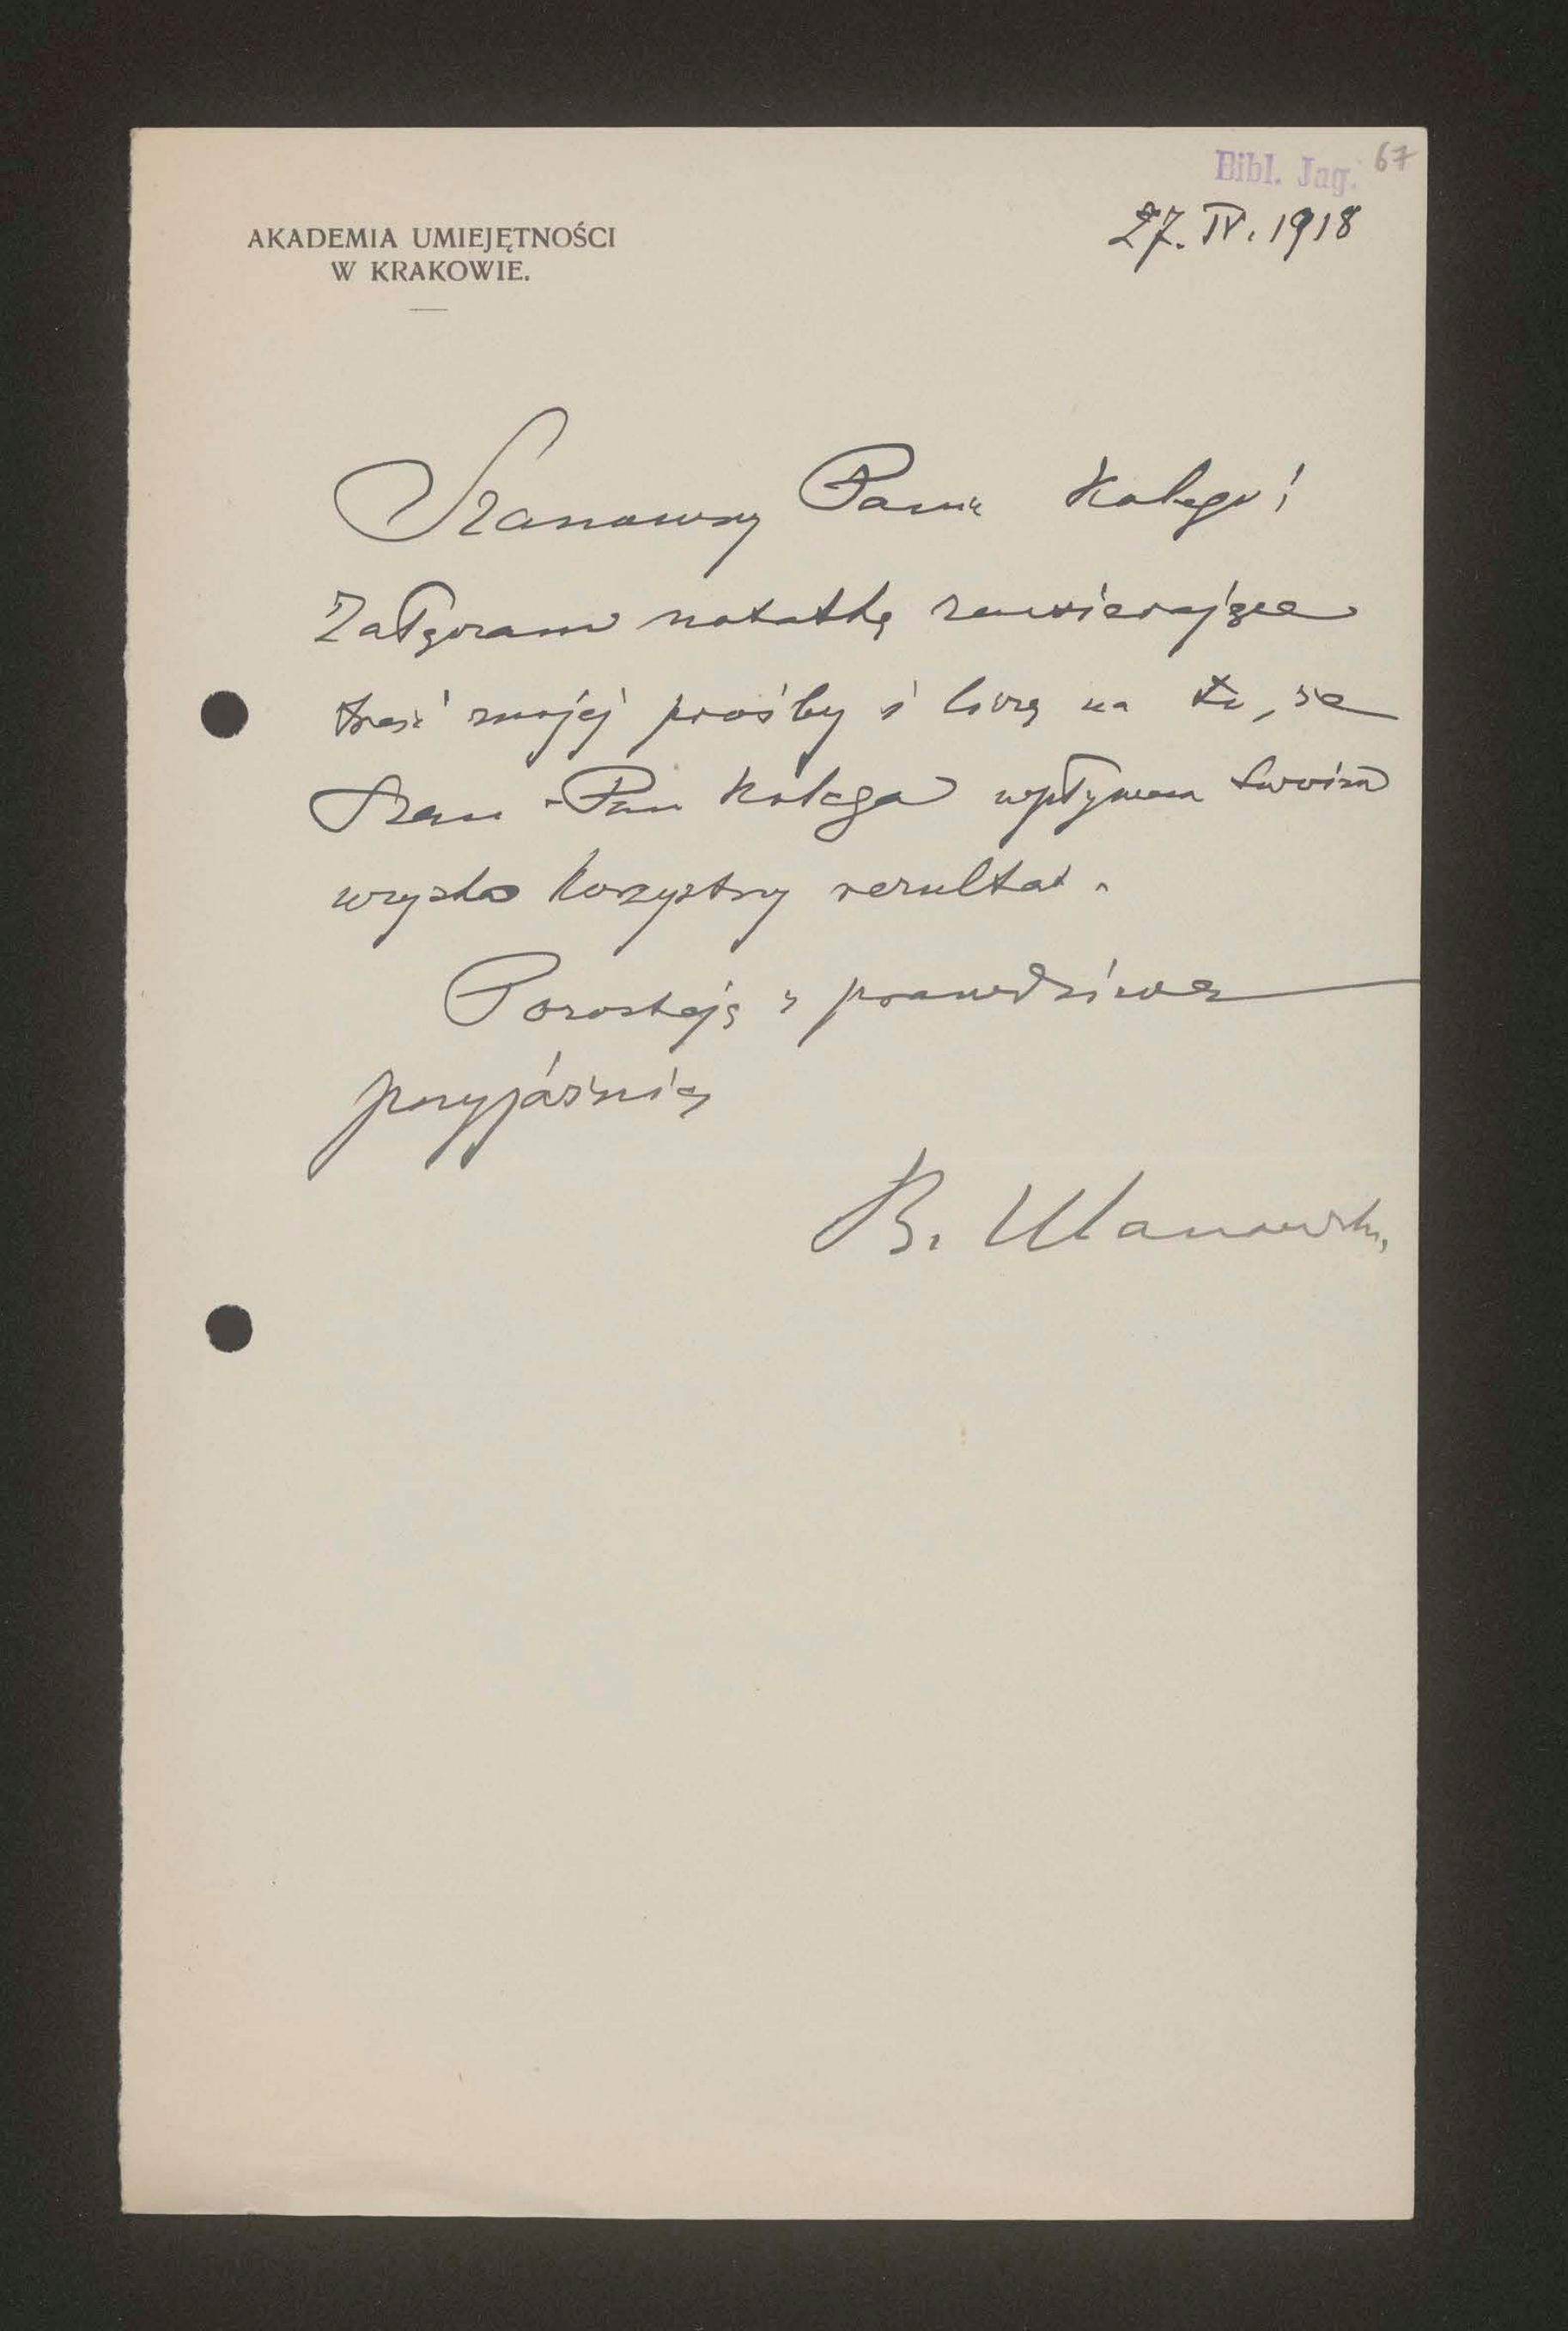 Bibl. Jag. 67
AKADEMIA UMIEJĘTNOŚCI
W KRAKOWIE.
27. IV. 1918
Szanowny Panie Kolego!
Załączam notatkę zawierającą
treść mojej prośby i liczę na to, że
Szan. Pan Kolega wpływem swoim
uzyska korzystny rezultat.
Pozostaję z prawdziwą
przyjaźnią
B. Ulanowski